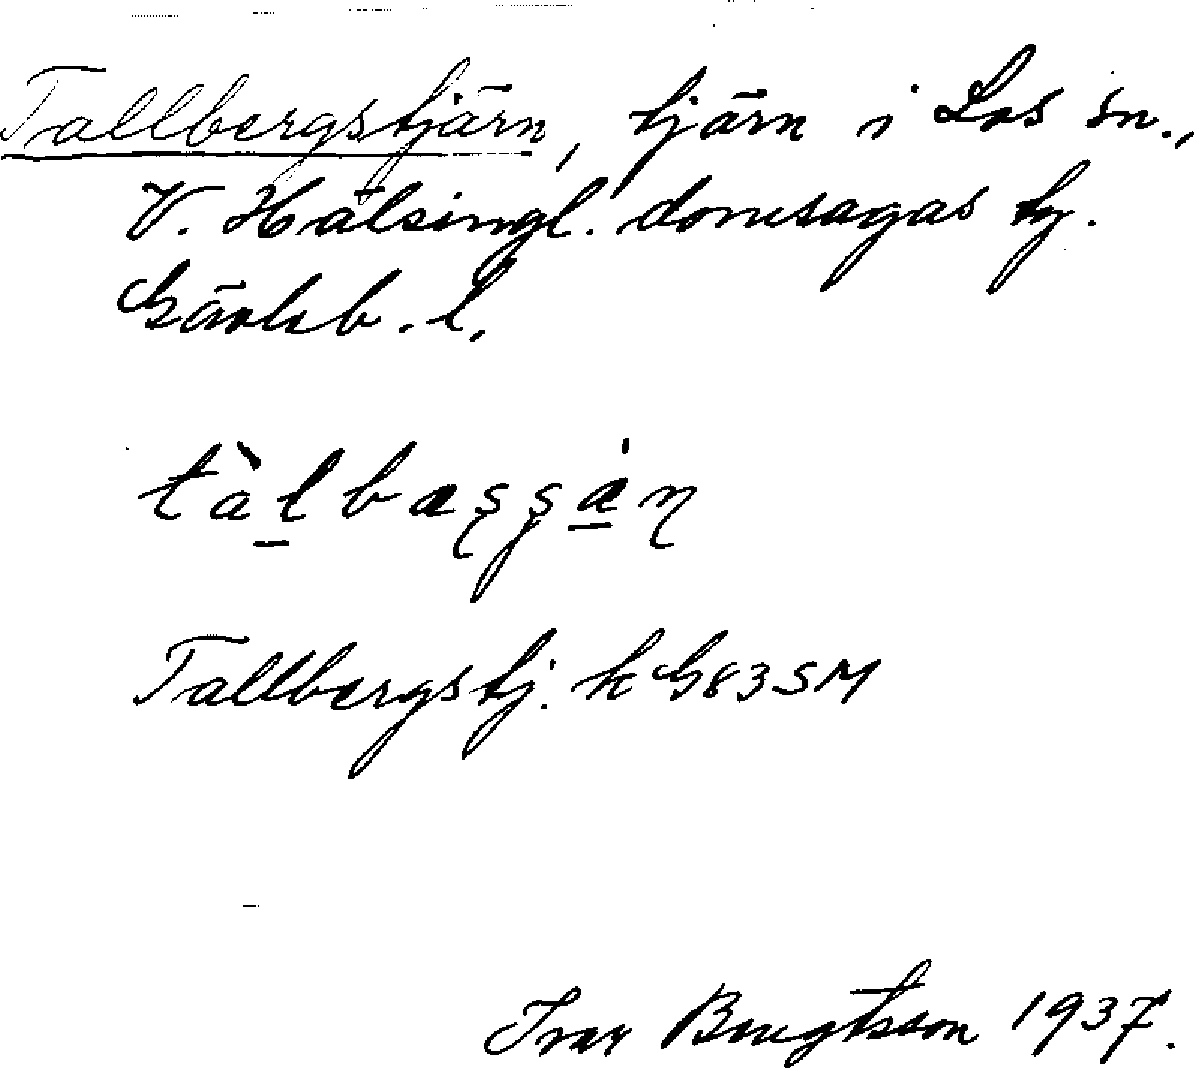 Tallbergstjärn, tjärn i Los sn.,
V. Hälsingl. domsagas tg.
Gävleb. l.
tàlbæʂʂæ̀ɳ
Tallbergstj. k G83SM
Ivar Bengtsson 1937.